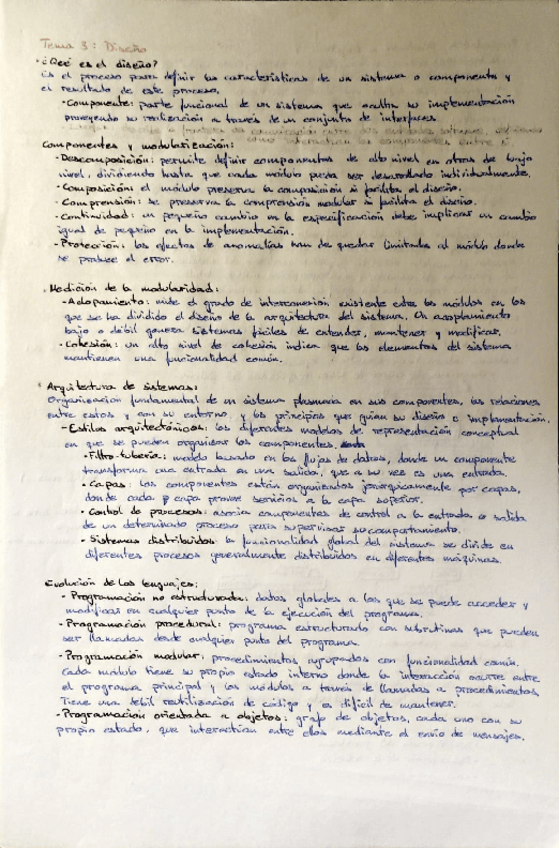 Tema 3: Diseño
· ¿Qué es el diseño?
Es el proceso para definir las características de un sistema o componente y
el resultado de este proceso.
· Componente: parte funcional de un sistema que oculta su implementación
proveyendo su realización a través de un conjunto de interfaces.
Componentes y modularización:
· Descomposición: permite definir componentes de alto nivel en otros de bajo
nivel, dividiendo hasta que cada módulo pueda ser desarrollado individualmente.
· Composición: el módulo preserva la composición si facilita el diseño.
· Comprensión: se preserva la comprensión modular si facilita el diseño.
· Continuidad: un pequeño cambio en la especificación debe implicar un cambio
igual de pequeño en la implementación.
· Protección: los efectos de anomalías han de quedar limitados al módulo donde
se produce el error.
· Medición de la modularidad:
· Acoplamiento: mide el grado de interconexión existente entre los módulos en los
que se ha dividido el diseño de la arquitectura del sistema. Un acoplamiento
bajo o débil genera sistemas fáciles de extender, mantener y modificar.
· Cohesión: un alto nivel de cohesión indica que los elementos del sistema
mantienen una funcionalidad común.
· Arquitectura de sistemas:
Organización fundamental de un sistema plasmada en sus componentes, las relaciones
entre estos y con su entorno, y los principios que guían su diseño e implementación.
· Estilos arquitectónicos: los diferentes modelos de representación conceptual
en que se pueden organizar los componentes.
· Filtro-tubería: modelo basado en los flujos de datos, donde un componente
transforma una entrada en una salida, que a su vez es una entrada.
· Capas: los componentes están organizados jerárquicamente por capas,
donde cada capa provee servicios a la capa superior.
· Control de procesos: asocia componentes de control a la entrada o salida
de un determinado proceso para supervisar su comportamiento.
· Sistemas distribuidos: la funcionalidad global del sistema se divide en
diferentes procesos generalmente distribuidos en diferentes máquinas.
Evolución de los lenguajes:
· Programación no estructurada: datos globales a los que se puede acceder y
modificar en cualquier punto de la ejecución del programa.
· Programación procedural: programa estructurado con subrutinas que pueden
ser llamadas desde cualquier punto del programa.
· Programación modular: procedimientos agrupados con funcionalidad común.
Cada módulo tiene su propio estado interno donde la interacción ocurre entre
el programa principal y los módulos a través de llamadas a procedimientos.
Tiene una débil reutilización de código y es difícil de mantener.
· Programación orientada a objetos: grafo de objetos, cada uno con su
propio estado, que interactúan entre ellos mediante el envío de mensajes.